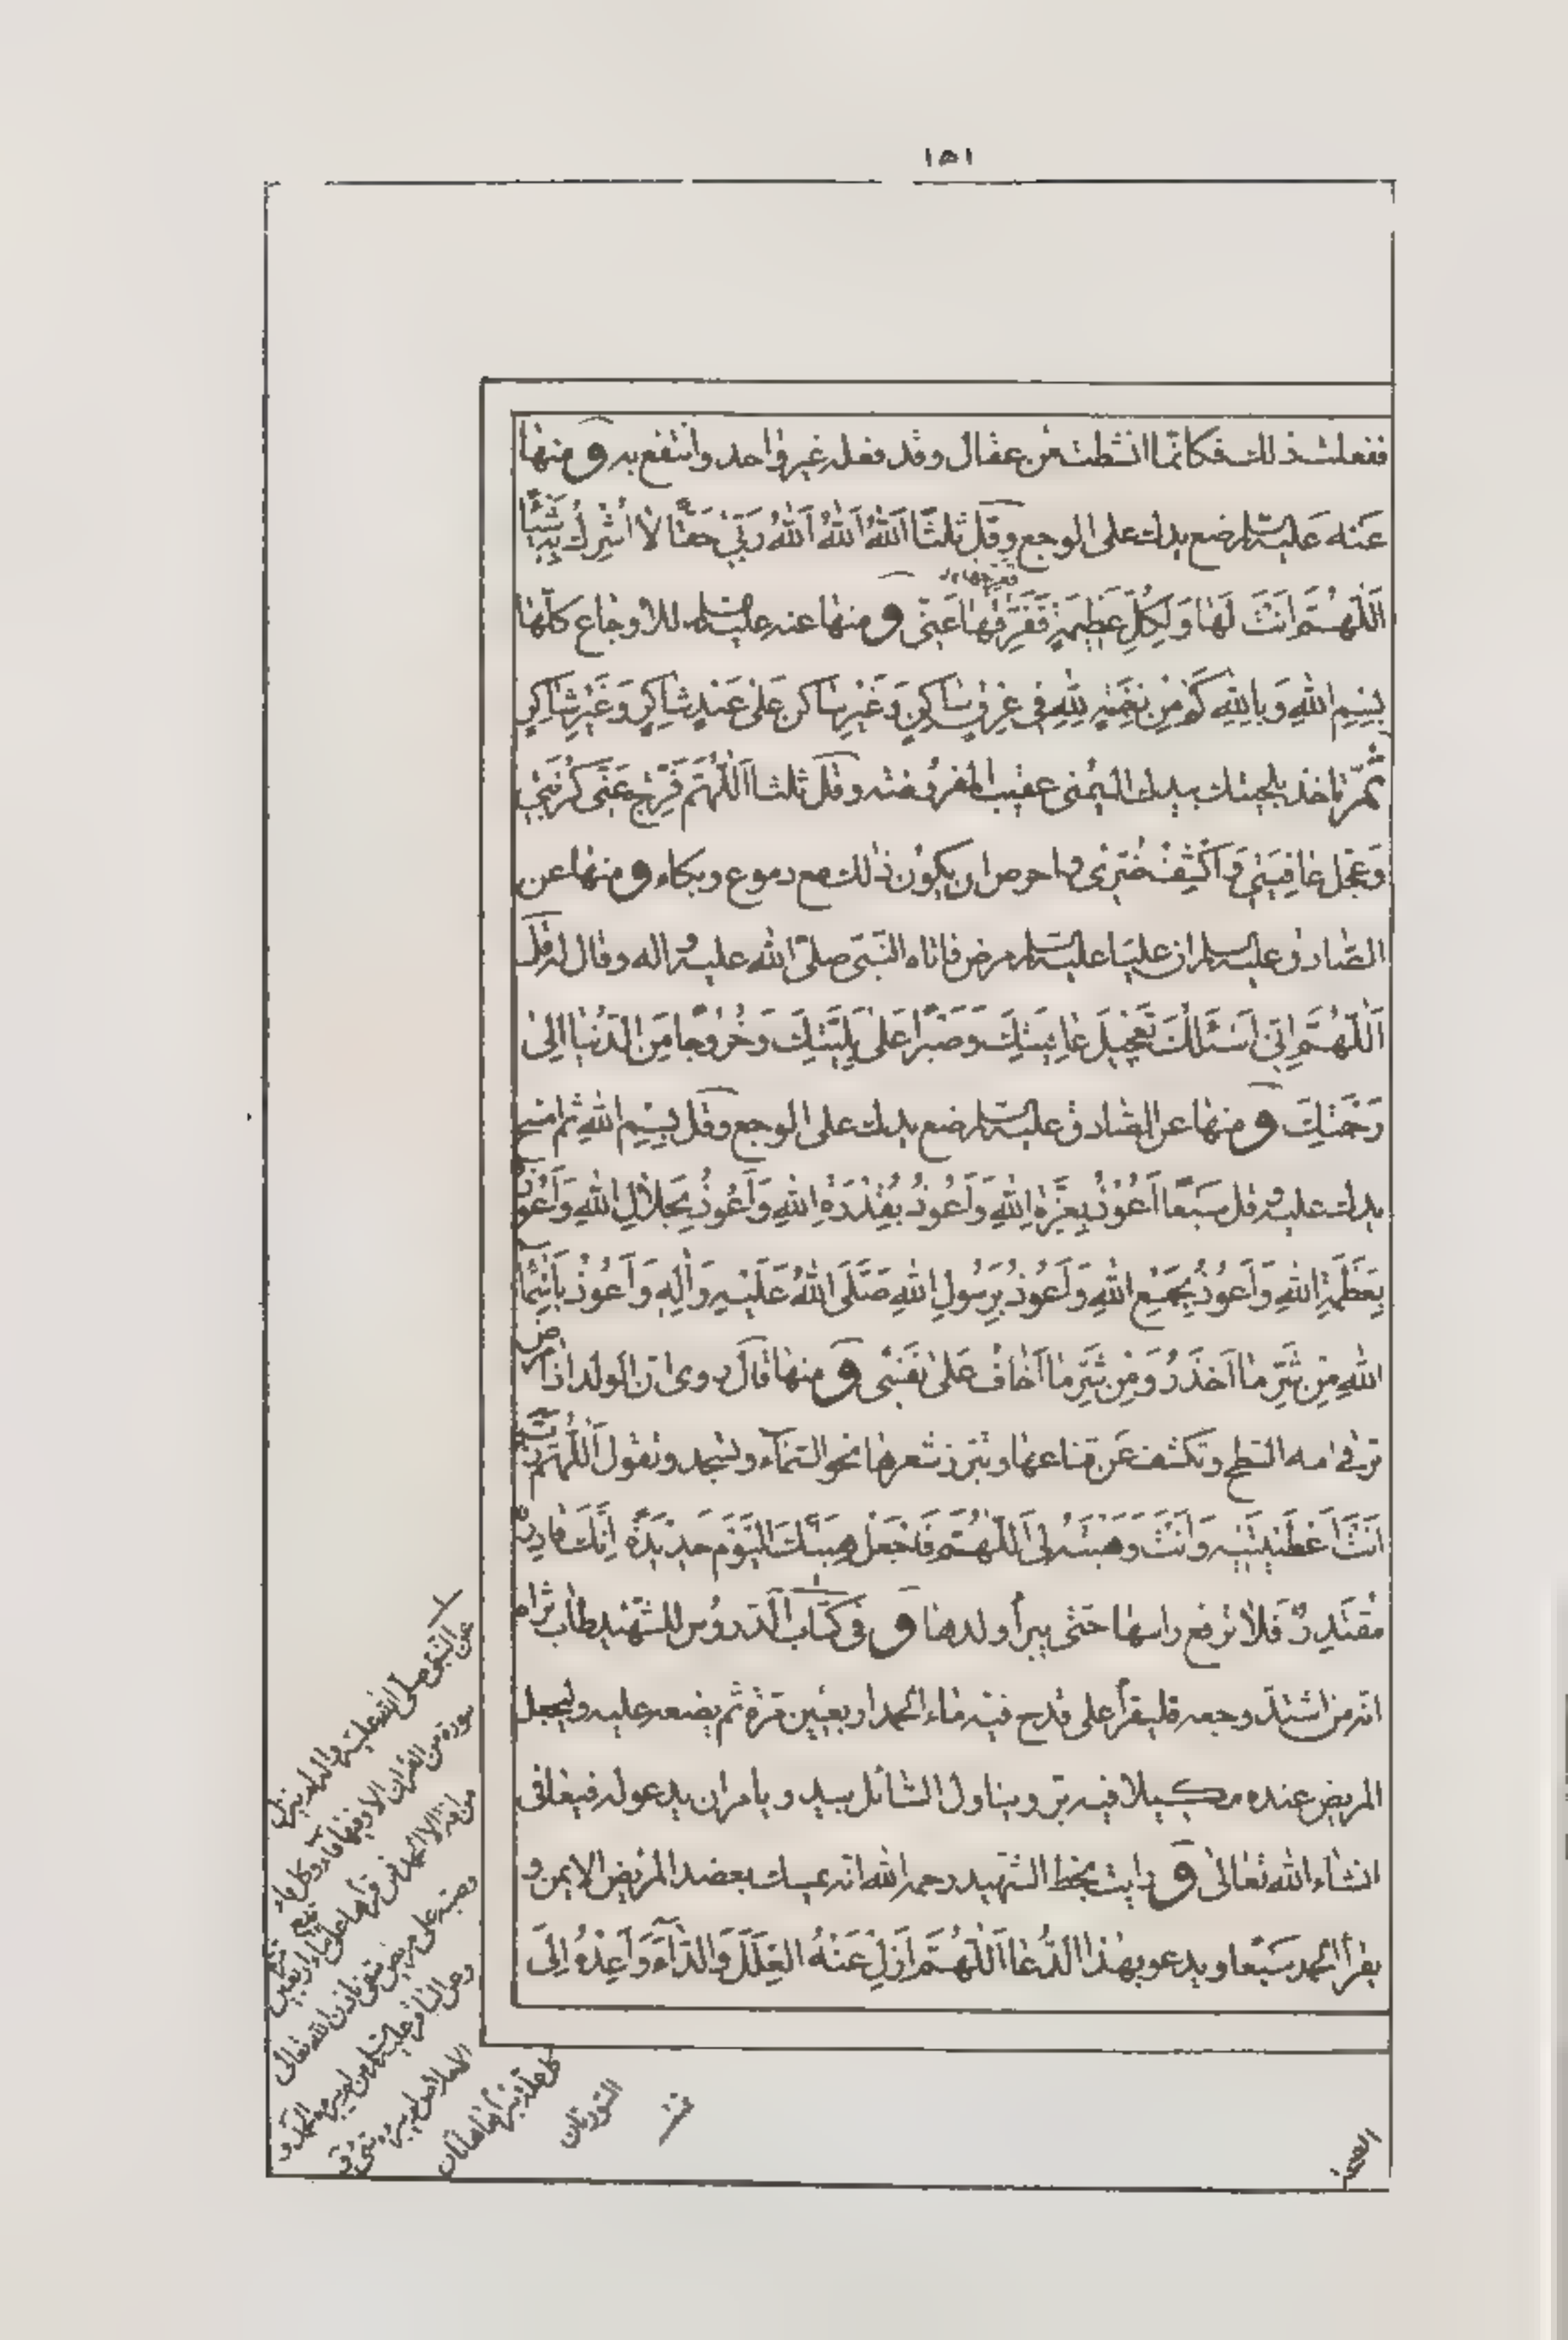 ١٥١
ففعلت ذلك فكانّما انشطت من عقال وقد فعله غير واحد وانتفع به و منها
عنه عليه السلم ضع يدك على الوجع وقل ثلثًا اَللّٰهُ اَللّٰهُ اَللّٰهُ رَبّي حَقًّا لا اُشْرِكُ بِهِ شَيْئًا
فَفَرِّجْها
اَللّهُمَّ اَنْتَ لَها وَلِكُلِّ عَظيمَةٍ فَفَرِّقْها عَنّي و منها عنه عليه السلم للاوجاع كلّها
بِسْمِ اللهِ وَبِاللهِ كَمْ مِنْ نِعْمَةٍ لِلّهِ في عِرْقٍ ساكِنٍ وَغَيْرِ ساكِنٍ عَلى عَبْدٍ شاكِرٍ وَغَيْرِ شاكِرٍ
ثمّ تاخذ بلحيتك بيدك اليمنى عقيب المفروضة وقل ثلثا اَللّهُمَّ فَرِّجْ عَنّي كُرْبَتي
وَعَجِّلْ عافِيَتي وَاكْشِفْ ضُرّي واحرص ان يكون ذلك مع دموع وبكاء و منها عن
الصّادق عليه السلم ان عليّا عليه السلم مرض فاتاه النّبيّ صلّى الله عليه واله وقال له قل
اَللّهُمَّ اِنّي اَسْئَلُكَ تَعْجيلَ عافِيَتِكَ وَصَبْرًا عَلى بَلِيَّتِكَ وَخُرُوجًا مِنَ الدُّنْيا اِلى
رَحْمَتِكَ و منها عن الصّادق عليه السلم ضع يدك على الوجع وقل بِسْمِ اللهِ ثم امسح
يدك عليه وقل سبعًا اَعُوذُ بِعِزَّةِ اللهِ وَاَعُوذُ بِقُدْرَةِ اللهِ وَاَعُوذُ بِجَلالِ اللهِ وَاَعُوذُ
بِعَظَمَةِ اللهِ وَاَعُوذُ بِجَمْعِ اللهِ وَاَعُوذُ بِرَسُولِ اللهِ صَلَّى اللهُ عَلَيْهِ وَالِهِ وَاَعُوذُ بِاَسْماءِ
اللهِ مِنْ شَرِّ ما اَحْذَرُ وَمِنْ شَرِّ ما اَخافُ عَلى نَفْسي و منها قال روى انّ الولد اذا مرض
ترقى امه السّطح وتكشف عن قناعها وتبرز شعرها نحو السّماء وتسجد وتقول اَللّهُمَّ رَبِّ
اَنْتَ اَعْطَيْتَنيهِ وَاَنْتَ وَهَبْتَهُ لي اَللّهُمَّ فَاجْعَلْ هِبَتَكَ الْيَوْمَ جَديدَةً اِنَّكَ قادِرٌ
مُقْتَدِرٌ فلا ترفع راسها حتّى يبرأ ولدها و في كتاب الدّروس للشّهيد طاب ثراه
انّه من اشتدّ وجعه فليقرأ على قدح فيه ماء الحمد اربعين مرّة ثم يضعه عليه وليجعل
المريض عنده مكيلا فيه برّ ويناول السّائل بيده ويامر ان يدعو له فيعافى
انشاء الله تعالى و رايت بخط الشّهيد رحمه الله انّه يمسك بعضد المريض الايمن و
يقرأ الحمد سَبْعًا ويدعو بهذا الدُّعا اَللّهُمَّ اَزِلْ عَنْهُ الْعِلَلَ وَالدّاءَ وَاَعِدْهُ اِلَى
عن النّبي صلى الله عليه واله
سورة من القران الا وفيها
على مريض شفى باذن الله تعالى
وعن الباقر عليه السلم من لم يبرئه الحمد و
الاخلاص لم يبرئه شئ و
كل علة تبرأها هاتان
السّورتان